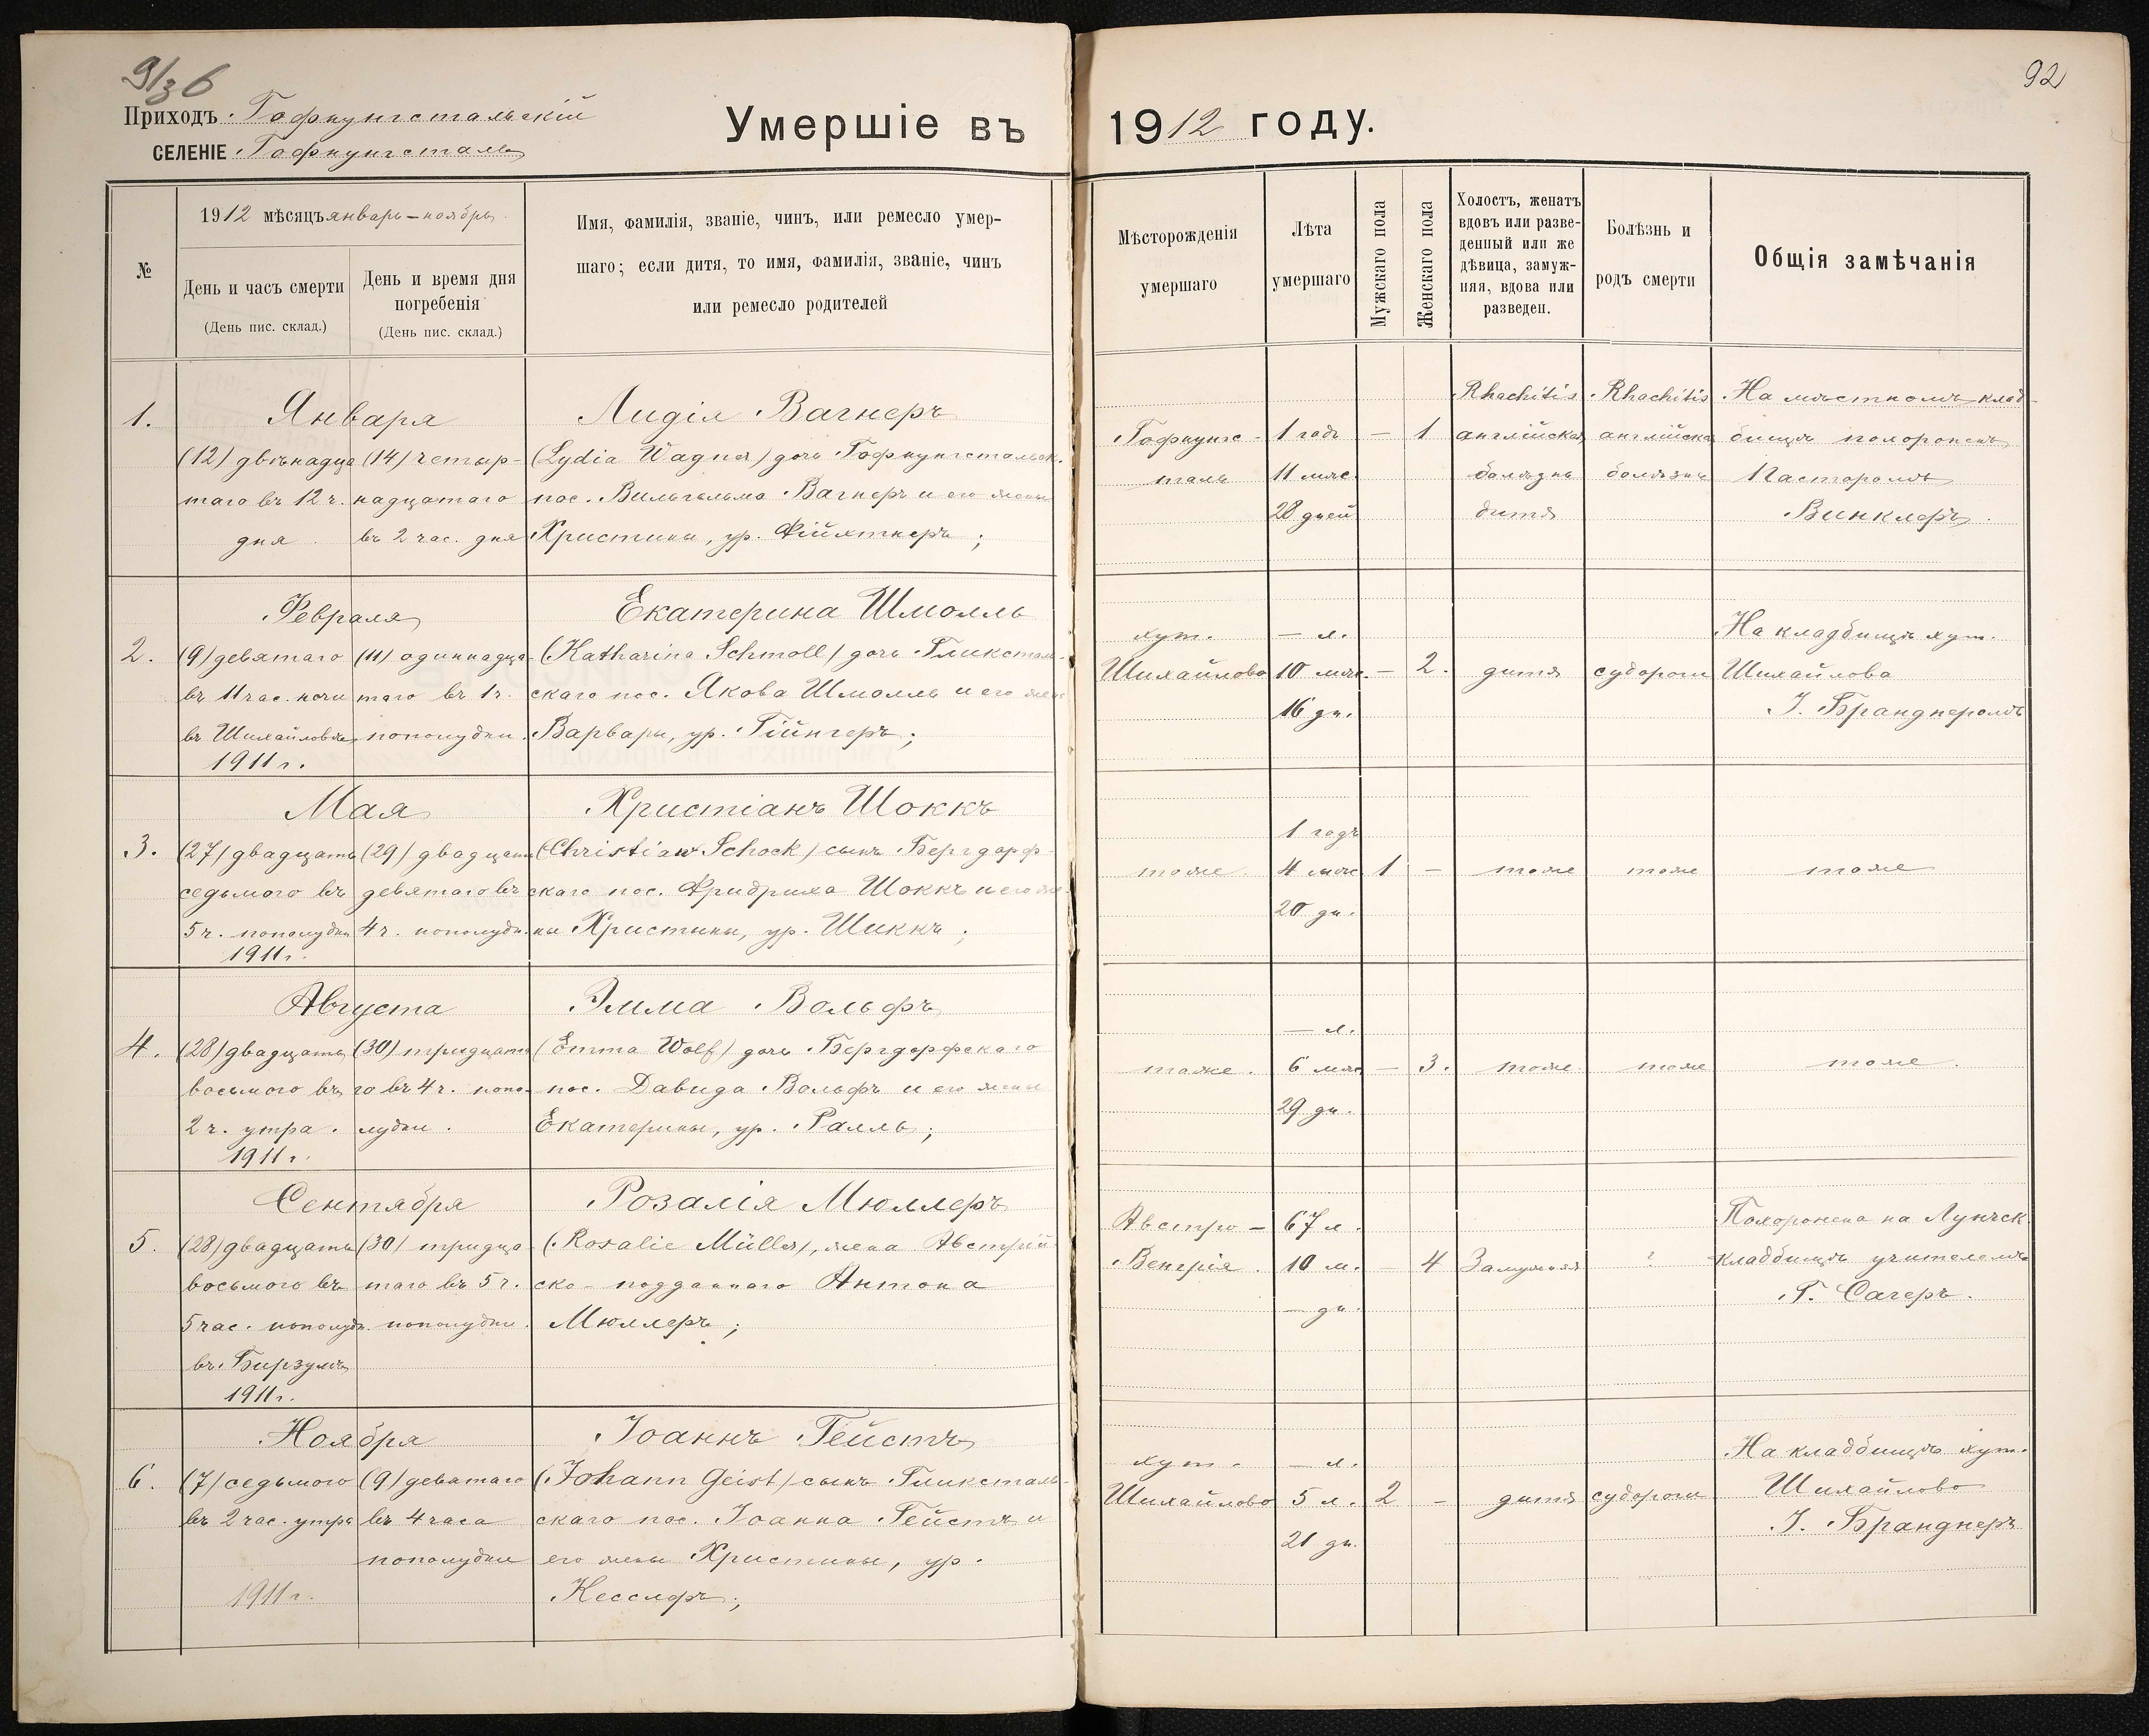 9/36
92
Приходъ Гофнунгстальскій
СЕЛЕНІЕ Гофнунгсталь
Умершіе въ 1912 году.
№
1912 мѣсяцъ январь – ноябрь.
День и часъ смерти
(День пис. склад.)
День и время дня
погребенія
(День пис. склад.)
Имя, фамилія, званіе, чинъ, или ремесло умер-
шаго; если дитя, то имя, фамилія, званіе, чинъ
или ремесло родителей
Мѣсторожденія
умершаго
Лѣта
умершаго
Мужскаго пола
Женскаго пола
Холостъ, женатъ
вдовъ или разве-
денный или же
дѣвица, замуж-
няя, вдова или
разведен.
Болѣзнь и
родъ смерти
Общія замѣчанія
1.
Января
(12) двѣнадца
таго въ 12 ч.
дня
(14) четыр-
надцатаго
въ 2 час. дня
Лидія Вагнеръ
(Lydia Wagner) дочь Гофнунгстальск.
пос. Вильгельма Вагнеръ и его жены
Христины, ур. Фійхтнеръ;
Гофнунгс-
таль
1 годъ
11 мѣс.
28 дней
–
1
Rhachitis
англійская
болѣзнь
дитя
Rhachitis
англійская
болѣзнь
На мѣстномъ клад-
бищѣ похороненъ
Пасторомъ
Винклеръ.
2.
Февраля
(9) девятаго
въ 11 час. ночи
въ Шихайловѣ
1911 г.
(11) одиннадца-
таго въ 1 ч.
пополудни.
Екатерина Шмолль
(Katharina Schmoll) дочь Гликсталь-
скаго пос. Якова Шмолль и его жены
Варвары, ур. Гійнгеръ;
хут.
Шихайлово
– л.
10 мѣс.
16 дн.
–
2.
дитя
судороги
На кладбищѣ хут.
Шихайлова
І. Бранднеромъ
3.
Мая
(27) двадцать
седьмого въ
5 ч. пополудни
1911 г.
(29) двадцать
девятаго въ
4 ч. пополудн.
Христіанъ Шоккъ
(Christian Schock) сынъ Бергдорф-
скаго пос. Фридриха Шоккъ и его же
ны Христины, ур. Шиккъ;
тоже.
1 годъ
4 мѣс.
20 дн.
1
–
тоже
тоже
тоже
4.
Августа
(28) двадцать
восьмого въ
2 ч. утра.
1911 г.
(30) тридцата
го въ 4 ч. попо-
лудни.
Эмма Вольфъ
(Emma Wolf) дочь Бергдорфскаго
пос. Давида Вольфъ и его жены
Екатерины, ур. Ралль;
тоже.
– л.
6 мѣс.
29 дн.
–
3.
тоже.
тоже
тоже.
5.
Сентября
(28) двадцать
восьмого въ
5 час. пополудн.
въ Бирзулѣ
1911 г.
(30) тридца-
таго въ 5 ч.
пополудни.
Розалія Мюллеръ
(Rosalie Müller), жена Австрій-
ско-подданнаго Антона
Мюллеръ;
Австро-
Венгрія.
67 л.
10 м.
– дн.
–
4
Замужняя
?
Похоронена на Лунгск.
кладбищѣ учителемъ
Г. Сагеръ.
6.
Ноября
(7) седьмого
въ 2 час. утра
1911 г.
(9) девятаго
въ 4 часа
пополудни
Іоаннъ Гейстъ
(Johann Geist) сынъ Гликсталь-
скаго пос. Іоанна Гейстъ и
его жены Христины, ур.
Кесслеръ;
хут.
Шихайлово
– л.
5 м.
21 дн.
2
–
дитя
судороги
На кладбищѣ хут.
Шихайлово
І. Бранднеръ